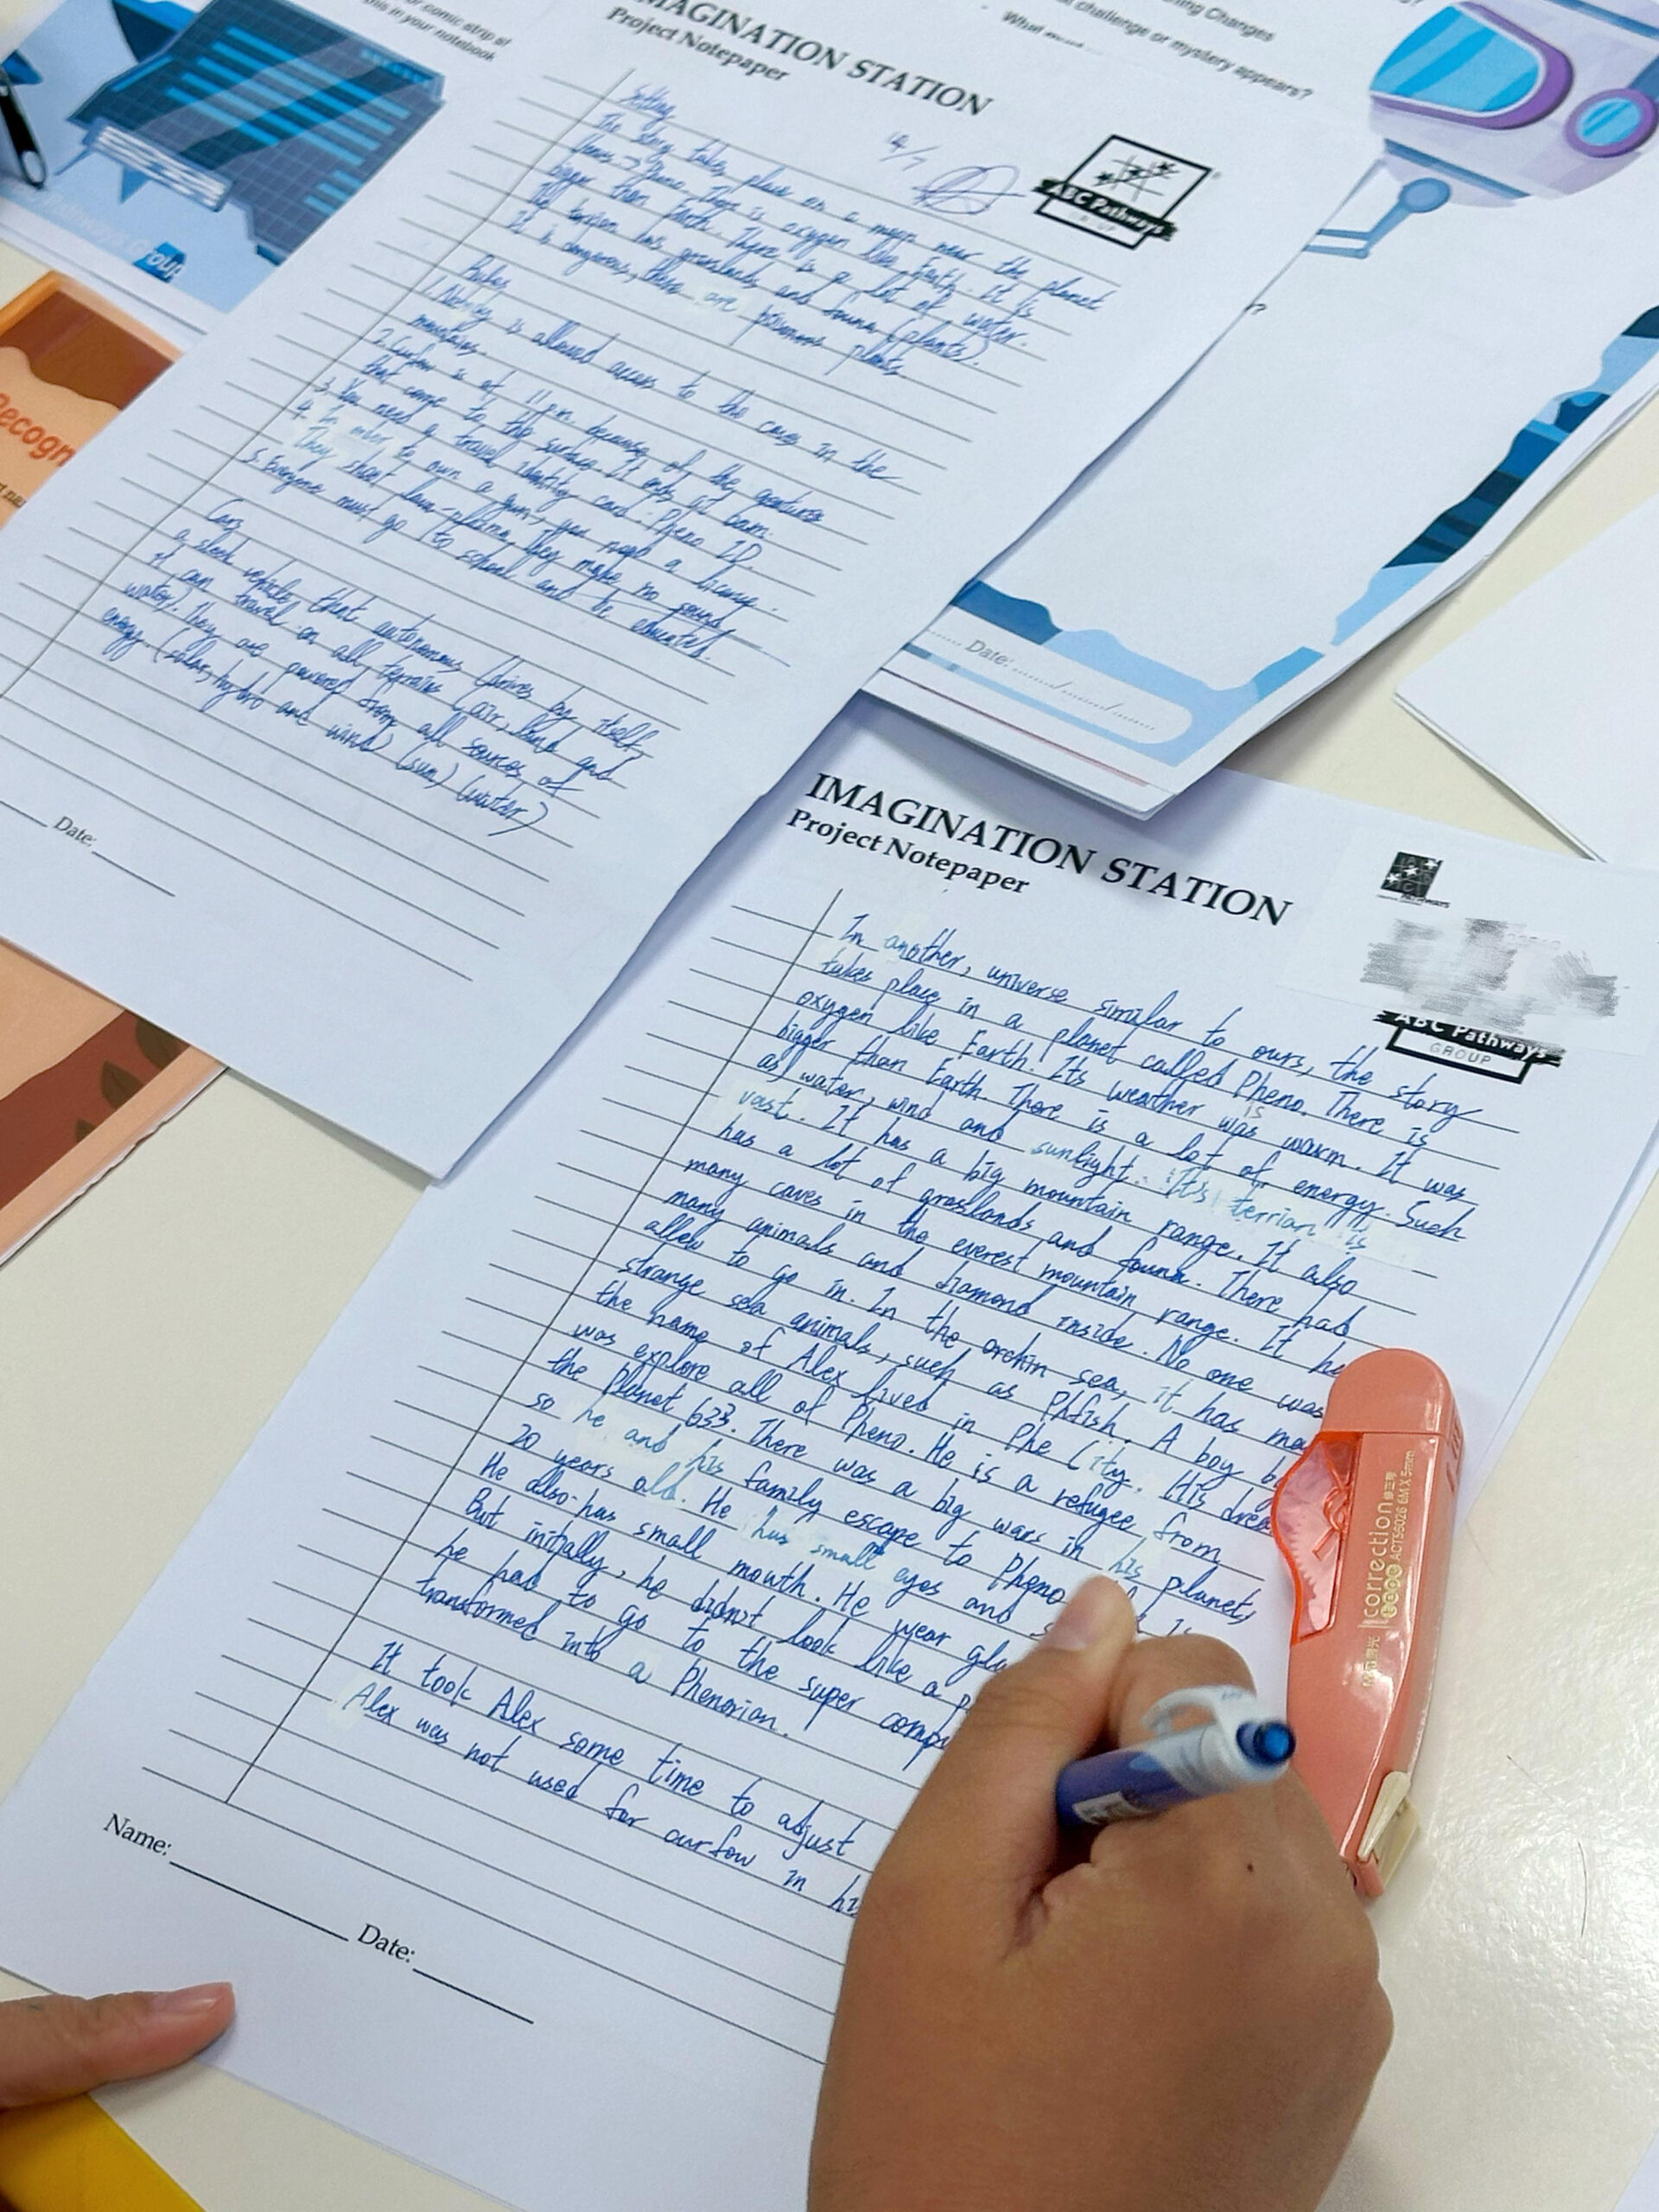 or comic strip s
this in your notebook
What
challenge or mystery appears?
ing Changes
Recogn
IMAGINATION STATION
Project Notepaper
ABC Pathways
Setting
4/7
The story takes place on a moon near the planet
There is oxygen like Earth. It is
bigger than Earth. There is a lot of water.
The terrain has grasslands and fauna (plants).
It is dangerous, there are poisonous plants.
Rules
1. Nobody is allowed access to the caves in the
mountains.
2. Curfew is at 11 p.m. because of the
that come to the surface. It ends at 6am.
3. You need a travel identity card: Pheno ID.
4. In order to own a gun, you need a license.
They shoot They make no sound
5. Everyone must go to school and be educated.
Cars
a sleek vehicle that autonomous (drives by itself,
it can travel on all terrains (air, land and
water). They are powered from all sources of
energy. (solar, hydro and wind) (sun) (water)
Date:
Date:
IMAGINATION STATION
Project Notepaper
ABC Pathways
GROUP
In another, universe similar to ours, the story
takes place in a planet called Pheno. There is
oxygen like Earth. Its weather was warm. It was
is
bigger than Earth. There is a lot of energy. Such
as water, wind and sunlight. It's terrian is
vast. It has a big mountain range. It also
has a lot of grasslands and fauna. There had
many caves in the everest mountain range. It ha
many animals and diamond inside. No one was
allew to go in. In the orchin sea, it has ma
strange sea animals, such as Phfish. A boy b
the name of Alex lived in Phe City. His drea
was explore all of Pheno. He is a refugee from
the planet 633. There was a big wars in his planet,
so he and his family escape to Pheno
20 years old. He has small eyes and
He also has small mouth. He wear gla
But initially, he didn't look like a p
he had to go to the super comp
transformed into a Phenorian.
It took Alex some time to adjust
Alex was not used for curfow in hi
Name:
Date:
correction
ACT56026 6M X 5mm